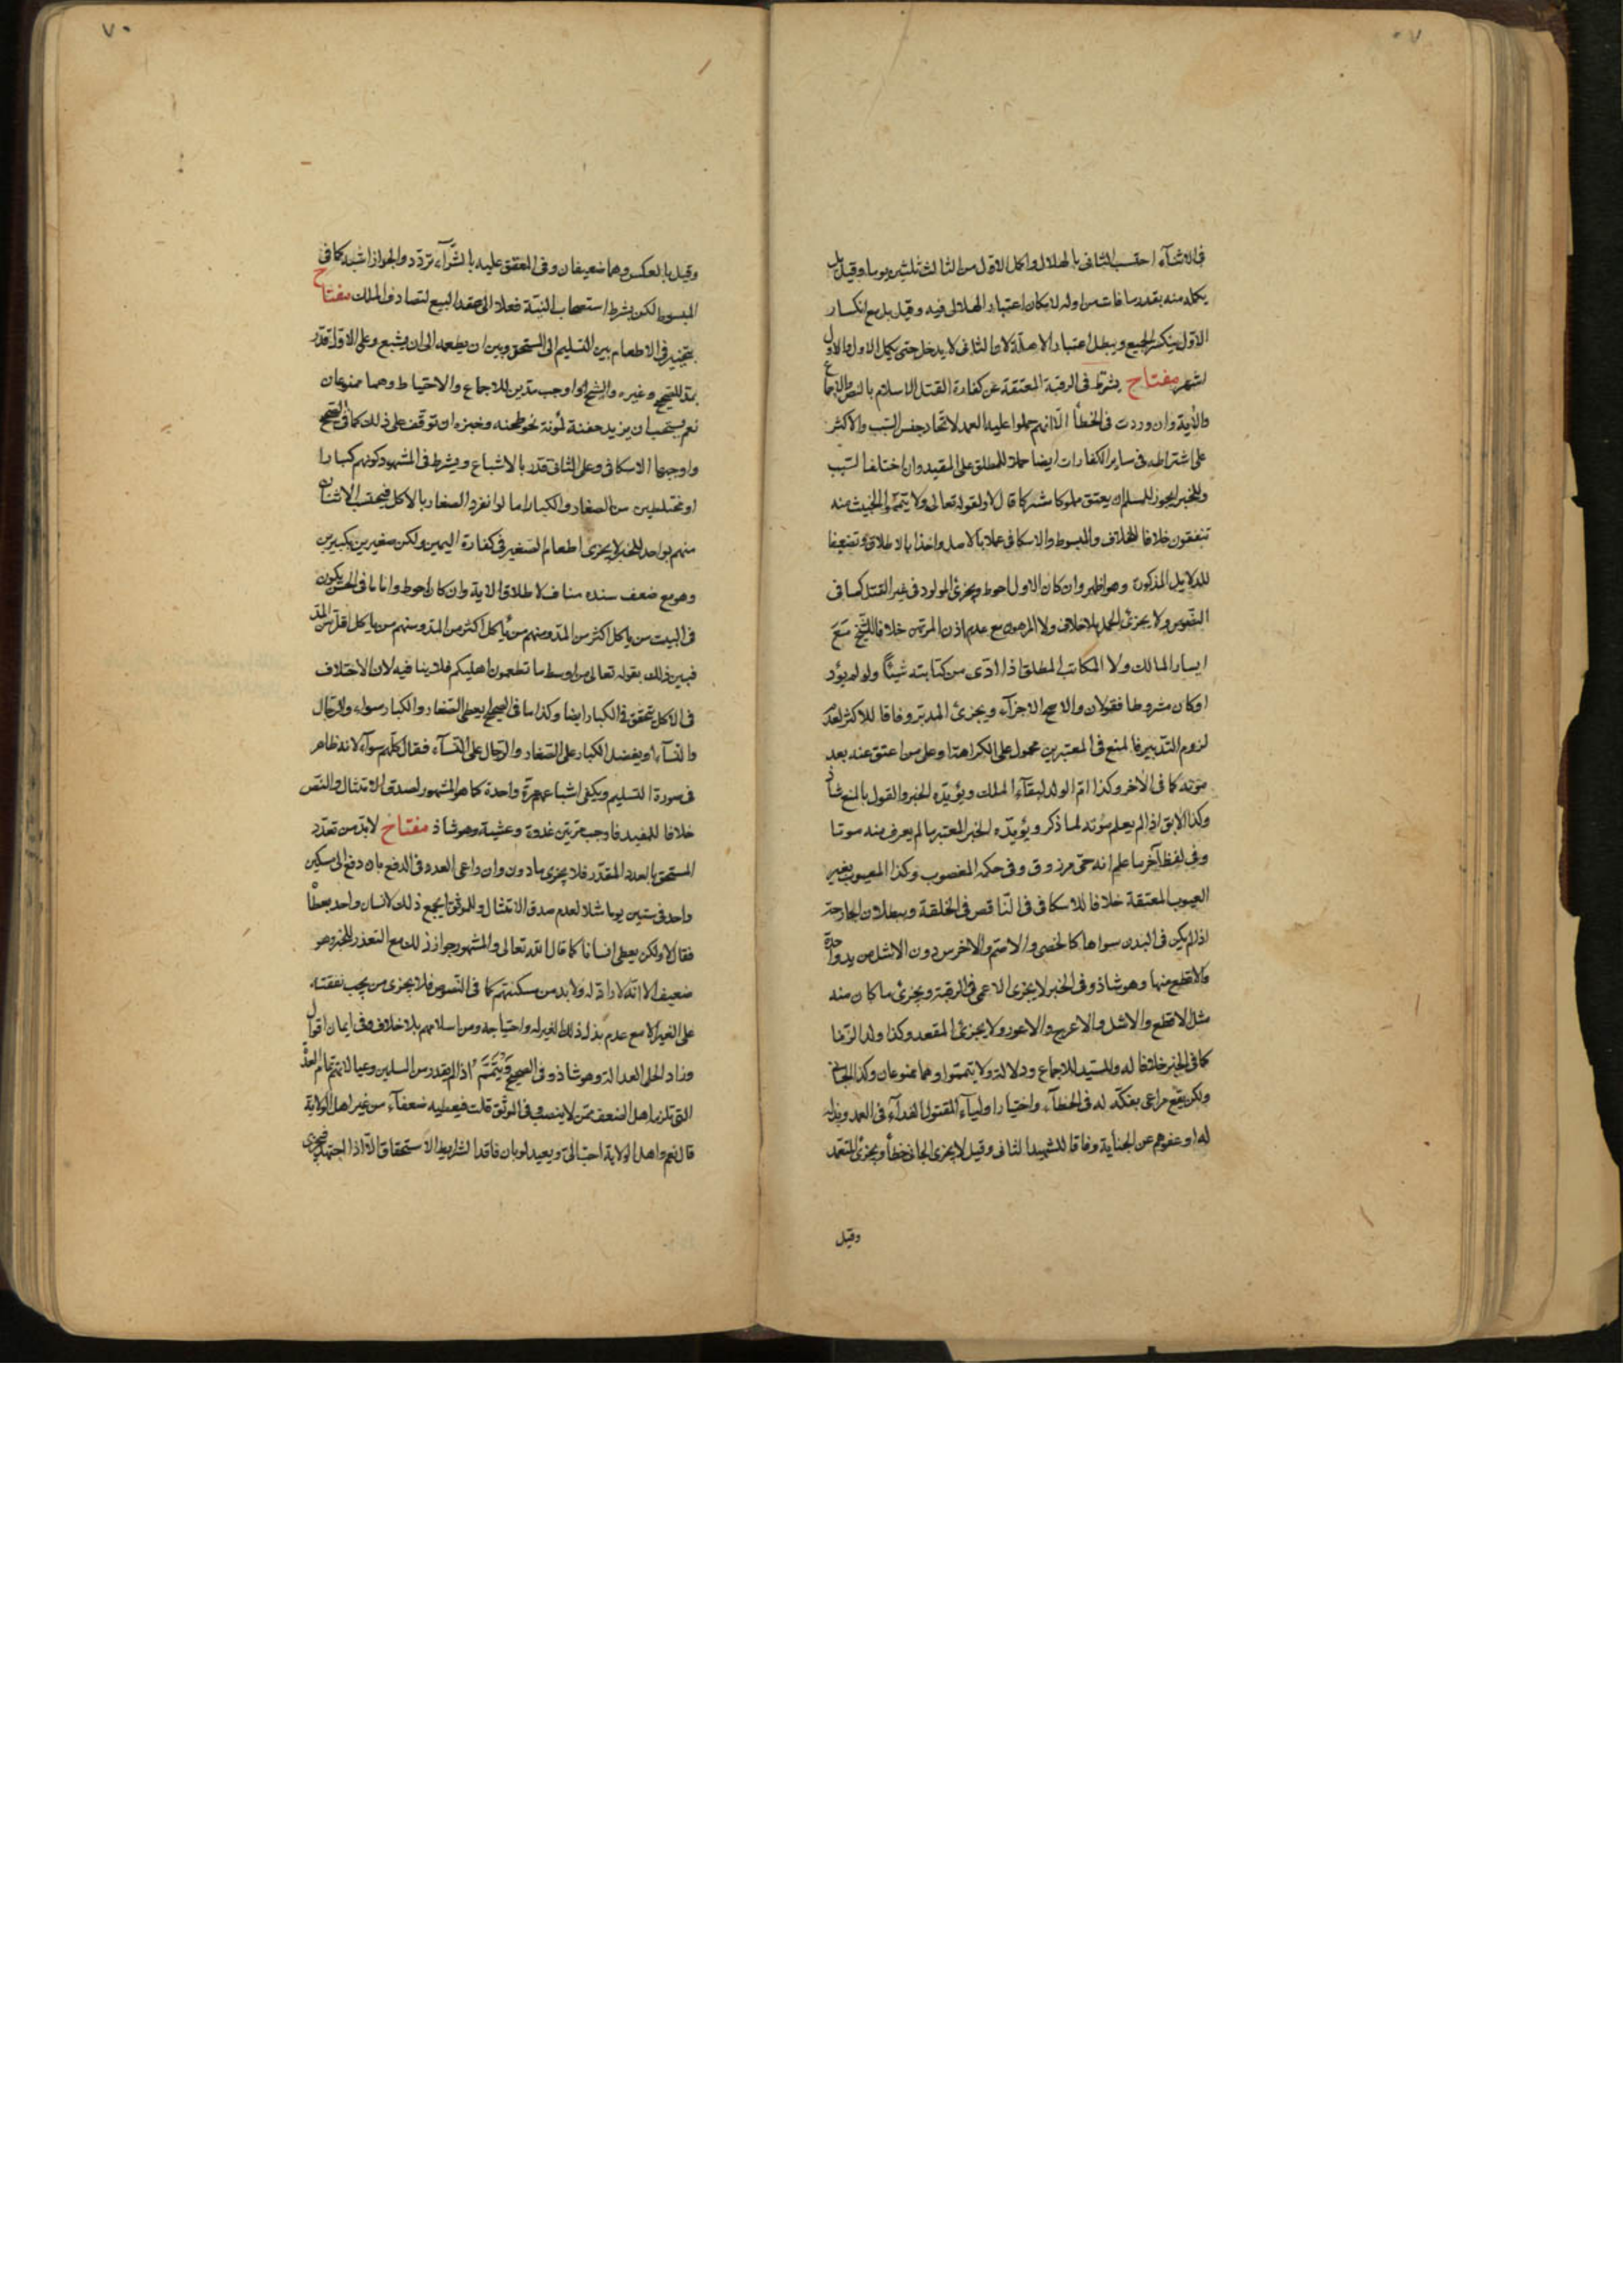 فى الاثناء احتسب الثانى بالهلال واكمل الاول من الثالث ثلثين يوما وقيل بل
يكمله منه بقدر ما فات من اوله لامكان اعتبار الهلالى فيه وقيل بل مع انكسار
الاول ينكسر الجميع ويبطل اعتبار الاهلة لان الثانى لا يدخل حتى يكمل الاول والاول
اشهر مفتاح يشترط فى الرقبة المعتقة عن كفارة القتل الاسلام بالنص والاجماع
والآية وان وردت فى الخطأ الا انهم حملوا عليه العمد لاتحاد جنس السبب والاكثر
على اشتراطه فى ساير الكفارات ايضا حملا للمطلق على المقيد وان اختلف السبب
وللخبر ايجوز للمسلم ان يعتق مملوكا مشركا قال لا ولقوله تعالى ولا تيمموا الخبيث منه
تنفقون خلافا للخلاف والمبسوط والاسكافى عملا بالاصل واخذا بالاطلاق وتضعيفا
للدلايل المذكورة وهو اظهر وان كان الاول احوط ويجزئ المولود فى غير القتل كما فى
النصوص ولا يجزئ الحمل بلا خلاف ولا المرهون مع عدم اذن المرتهن خلافا للشيخ مع
ايسار المالك ولا المكاتب المطلق اذا ادى من كتابته شيئا ولو لم يؤد
او كان مشروطا فقولان والاصح الاجزاء ويجزئ المدبر وفاقا للاكثر لعدم
لزوم التدبير فالمنع فى المعتبرين محمول على الكراهة او على من اعتق عنه بعد
موته كما فى الآخر وكذا ام الولد لبقاء الملك ويؤيده الخبر والقول بالمنع شاذ
وكذا الابق اذا لم يعلم موته لما ذكر ويؤيده الخبر المعتبر ما لم يعرف منه موتا
وفى لفظ آخر ما علم انه حى مرزوق وفى حكمه المغصوب وكذا المعيوب بغير
العيوب المعتقة خلافا للاسكافى فى الناقص فى الخلقة وببطلان الجارحة
اذا لم يكن فى البدن سواها كالخصى والاصم والاخرس دون الاشل من يد واحدة
والاقطع منها وهو شاذ وفى الخبر لا يجزى الاعمى فى الرقبة ويجزئ ما كان منه
مثل الاقطع والاشل والاعرج والاعور ولا يجزئ المقعد وكذا ولد الزنا
كما فى الخبر خلافا له وللسيد للاجماع ودلالة ولا تيمموا وهما ممنوعان وكذا الجانى
ولكن يقع مراعى بفكه له فى الخطاء واختيار اولياء المقتول الفداء فى العمد وبذله
له او عفوهم عن الجناية وفاقا للشهيد الثانى وقيل لا يجزى الجانى خطأ ويجزئ المتعمد
وقيل
٧٠
وقيل بالعكس وهما ضعيفان وفى المعتق عليه بالشراء تردد والجواز اشبه كما فى
المبسوط لكن يشترط استصحاب النية فعلا الى عقد البيع لتصادف الملك مفتاح
يتخير فى الاطعام بين التسليم الى المستحق وبين ان يطعمه الى ان يشبع وعلى الاول قدر
بمد للصحيح وغيره والشيخ اوجب مدين للاجماع والاحتياط وهما ممنوعان
نعم يستحب ان يزيد حفنة لمؤنة نحو طحنه وخبزه ان توقف على ذلك كما فى الصحيح
واوجبها الاسكافى وعلى الثانى قدر بالاشباع ويشترط فى المشهور كونهم كبارا
او مختلطين من الصغار والكبار اما لو انفرد الصغار بالاكل فيحتسب الاثنان
منهم بواحد للخبر لا يجزى اطعام الصغير فى كفارة اليمين ولكن صغيرين بكبير
وهو مع ضعف سنده مناف لاطلاق الاية وان كان احوط واما ما فى الحسن يكون
فى البيت من ياكل اكثر من المد ومنهم من ياكل اكثر من المد ومنهم من ياكل اقل من المد
فبين ذلك بقوله تعالى من اوسط ما تطعمون اهليكم فلا ينافيه لان الاختلاف
فى الاكل يتحقق فى الكبار ايضا وكذا ما فى الصحيح يعطى الصغار والكبار سواء والرجال
والنساء او يفضل الكبار على الصغار والرجال على النساء فقال كلهم سواء لانه ظاهر
فى صورة التسليم ويكفى اشباعهم مرة واحدة كما هو المشهور لصدق الامتثال والنص
خلافا للمفيد فاوجب مرتين غدوة وعشية وهو شاذ مفتاح لابد من تعدد
المستحق بالعدد المقدر فلا يجزى ما دون وان راعى العدد فى الدفع بان دفع الى مسكين
واحد فى ستين يوما مثلا لعدم صدق الامتثال وللموثق ايجمع ذلك لانسان واحد يعطا
فقال لا ولكن يعطى انسانا كما قال الله تعالى والمشهور جواز ذلك مع التعذر للخبر وهو
ضعيف الا انه لا راد له ولابد من مسكنتهم كما فى النصوص فلا يجزى من يجب نفقته
على الغير الا مع عدم بذل ذلك الغير له واحتياجه ومن اسلامهم بلا خلاف وفى ايمان اقوال
وزاد الحلى العدالة وهو شاذ وفى الصحيح ويتمم اذا لم يقدر من المسلمين وعيالاتهم تمام العدة
التى تلزمه اهل الضعف ممن لا ينصب وفى الموثق قلت فيعطيه ضعفاء من غير اهل الولاية
قال نعم واهل الولاية احب الى ويعيد لو بان فاقدا لشرايط الاستحقاق الا اذا اجتهد فيجزى